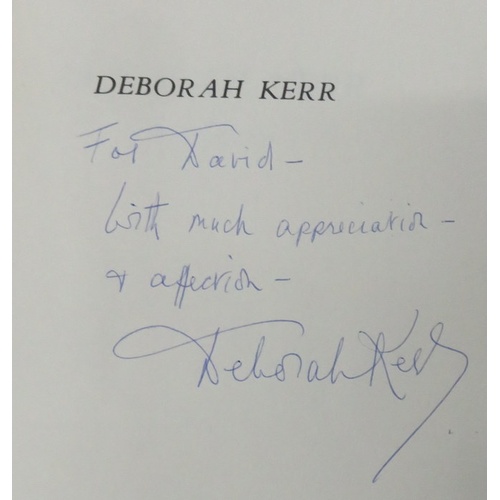 DEBORAH KERR
For David –
With much appreciation –
& affection –
Deborah Kerr